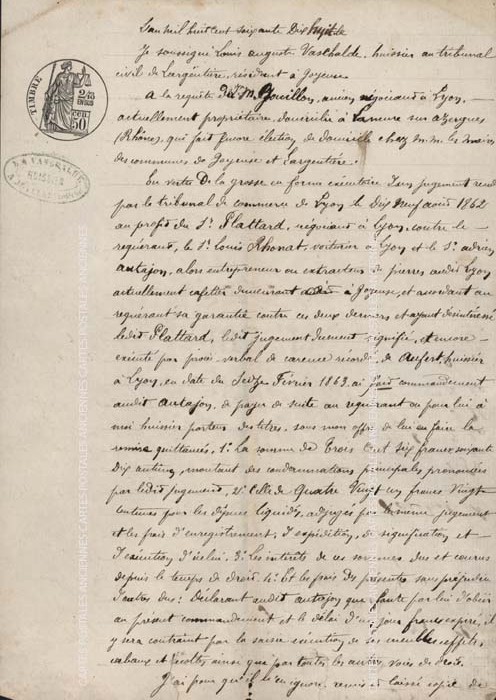 L'an mil huit cent soixante Dix huit le
Je soussigné Louis auguste Vaschalde, huissier au tribunal
civil de Largentière, résidant à Joyeuse
A la requête du Sr M. Gouillon, ancien négociant à Lyon,
actuellement propriétaire, domicilié à Larnure sur azergues
(Rhône), qui fait encore élection de domicile chez m.m. les maires
des communes de Joyeuse et Largentière.
En vertu De la grosse en forme exécutoire d'un jugement rendu
par le tribunal de commerce de Lyon le Dix neuf août 1862
au profit du Sr Plattard, négociant à Lyon, contre le
requérant, le Sr Louis Rhonat, voiturier à Lyon et le Sr adrien
autajon, alors entrepreneur ou extracteur de pierres audit Lyon
actuellement cafetier demeurant à Joyeuse, et accordant au
requérant sa garantie contre ces deux derniers et ayant désintéressé
ledit Plattard, ledit jugement dument signifié, et encore
exécuté par procès verbal de carence récordé, de aufert, huissier
à Lyon, en date du Seize Février 1863, ai fait commandement
audit autajon, de payer de suite au requérant ou pour lui à
moi huissier porteur des titres, sous mon offre de lui en faire la
remise quittancés, 1° La somme de Trois Cent six francs soixante
Dix centimes, montant des condamnations principales prononcées
par ledit jugement, 2° Celle de Quatre Vingt un francs Vingt
Centimes pour les dépens liquidés, adjugés par le même jugement
et les frais d'enregistrement, d'expédition, de signification et
D'exécution d'icelui, 3° Les intérêts de ces sommes dus et courus
depuis le temps de droit, 4° Et les frais des présentes sans préjudice
D'autres dus: Déclarant audit autajon que faute par lui d'obéir
au présent commandement et le délai d'un jour franc expiré, il
y sera contraint par la saisie exécution de ses meubles, effets,
cabaux et récoltes ainsi que par toutes les autres voies de droit.
J'ai pour qu'il n'en ignore, remis et laissé copie de
TIMBRE
50